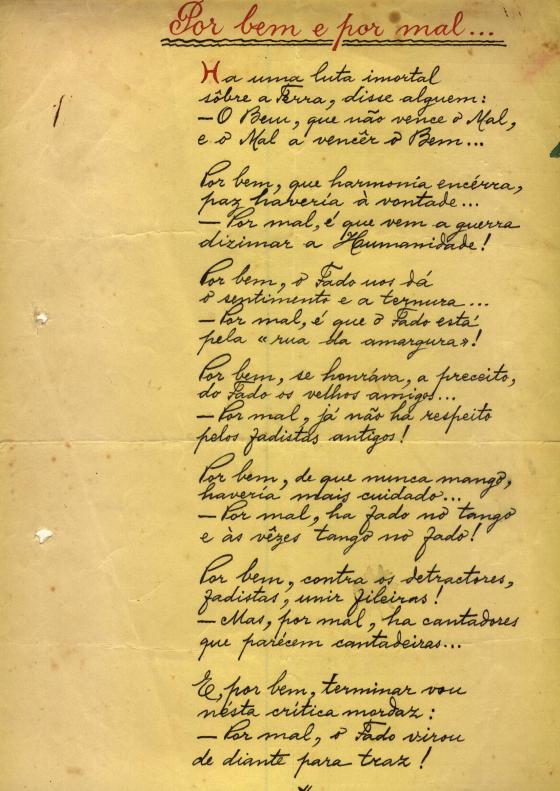 Por bem e por mal...
Ha uma luta imortal
sôbre a Terra, disse alguem:
—O Bem, que não vence o Mal,
e o Mal a vencêr o Bem...
Por bem, que harmonia encérra,
paz haveria à vontade...
—Por mal, é que vem a guerra
dizimar a Humanidade!
Por bem, o Fado nos dá
o sentimento e a ternura...
—Por mal, é que o Fado está
pela «rua da amargura»!
Por bem, se honráva, a preceito,
do Fado os velhos amigos...
—Por mal, já não ha respeito
pelos fadistas antigos!
Por bem, de que nunca mango,
haveria mais cuidado...
—Por mal, ha fado no tango
e às vêzes tango no fado!
Por bem, contra os detractores,
fadistas, unir fileiras!
—Mas, por mal, ha cantadores
que parécem cantadeiras...
E, por bem, terminar vou
nésta critica mordaz:
—Por mal, o Fado virou
de diante para traz!